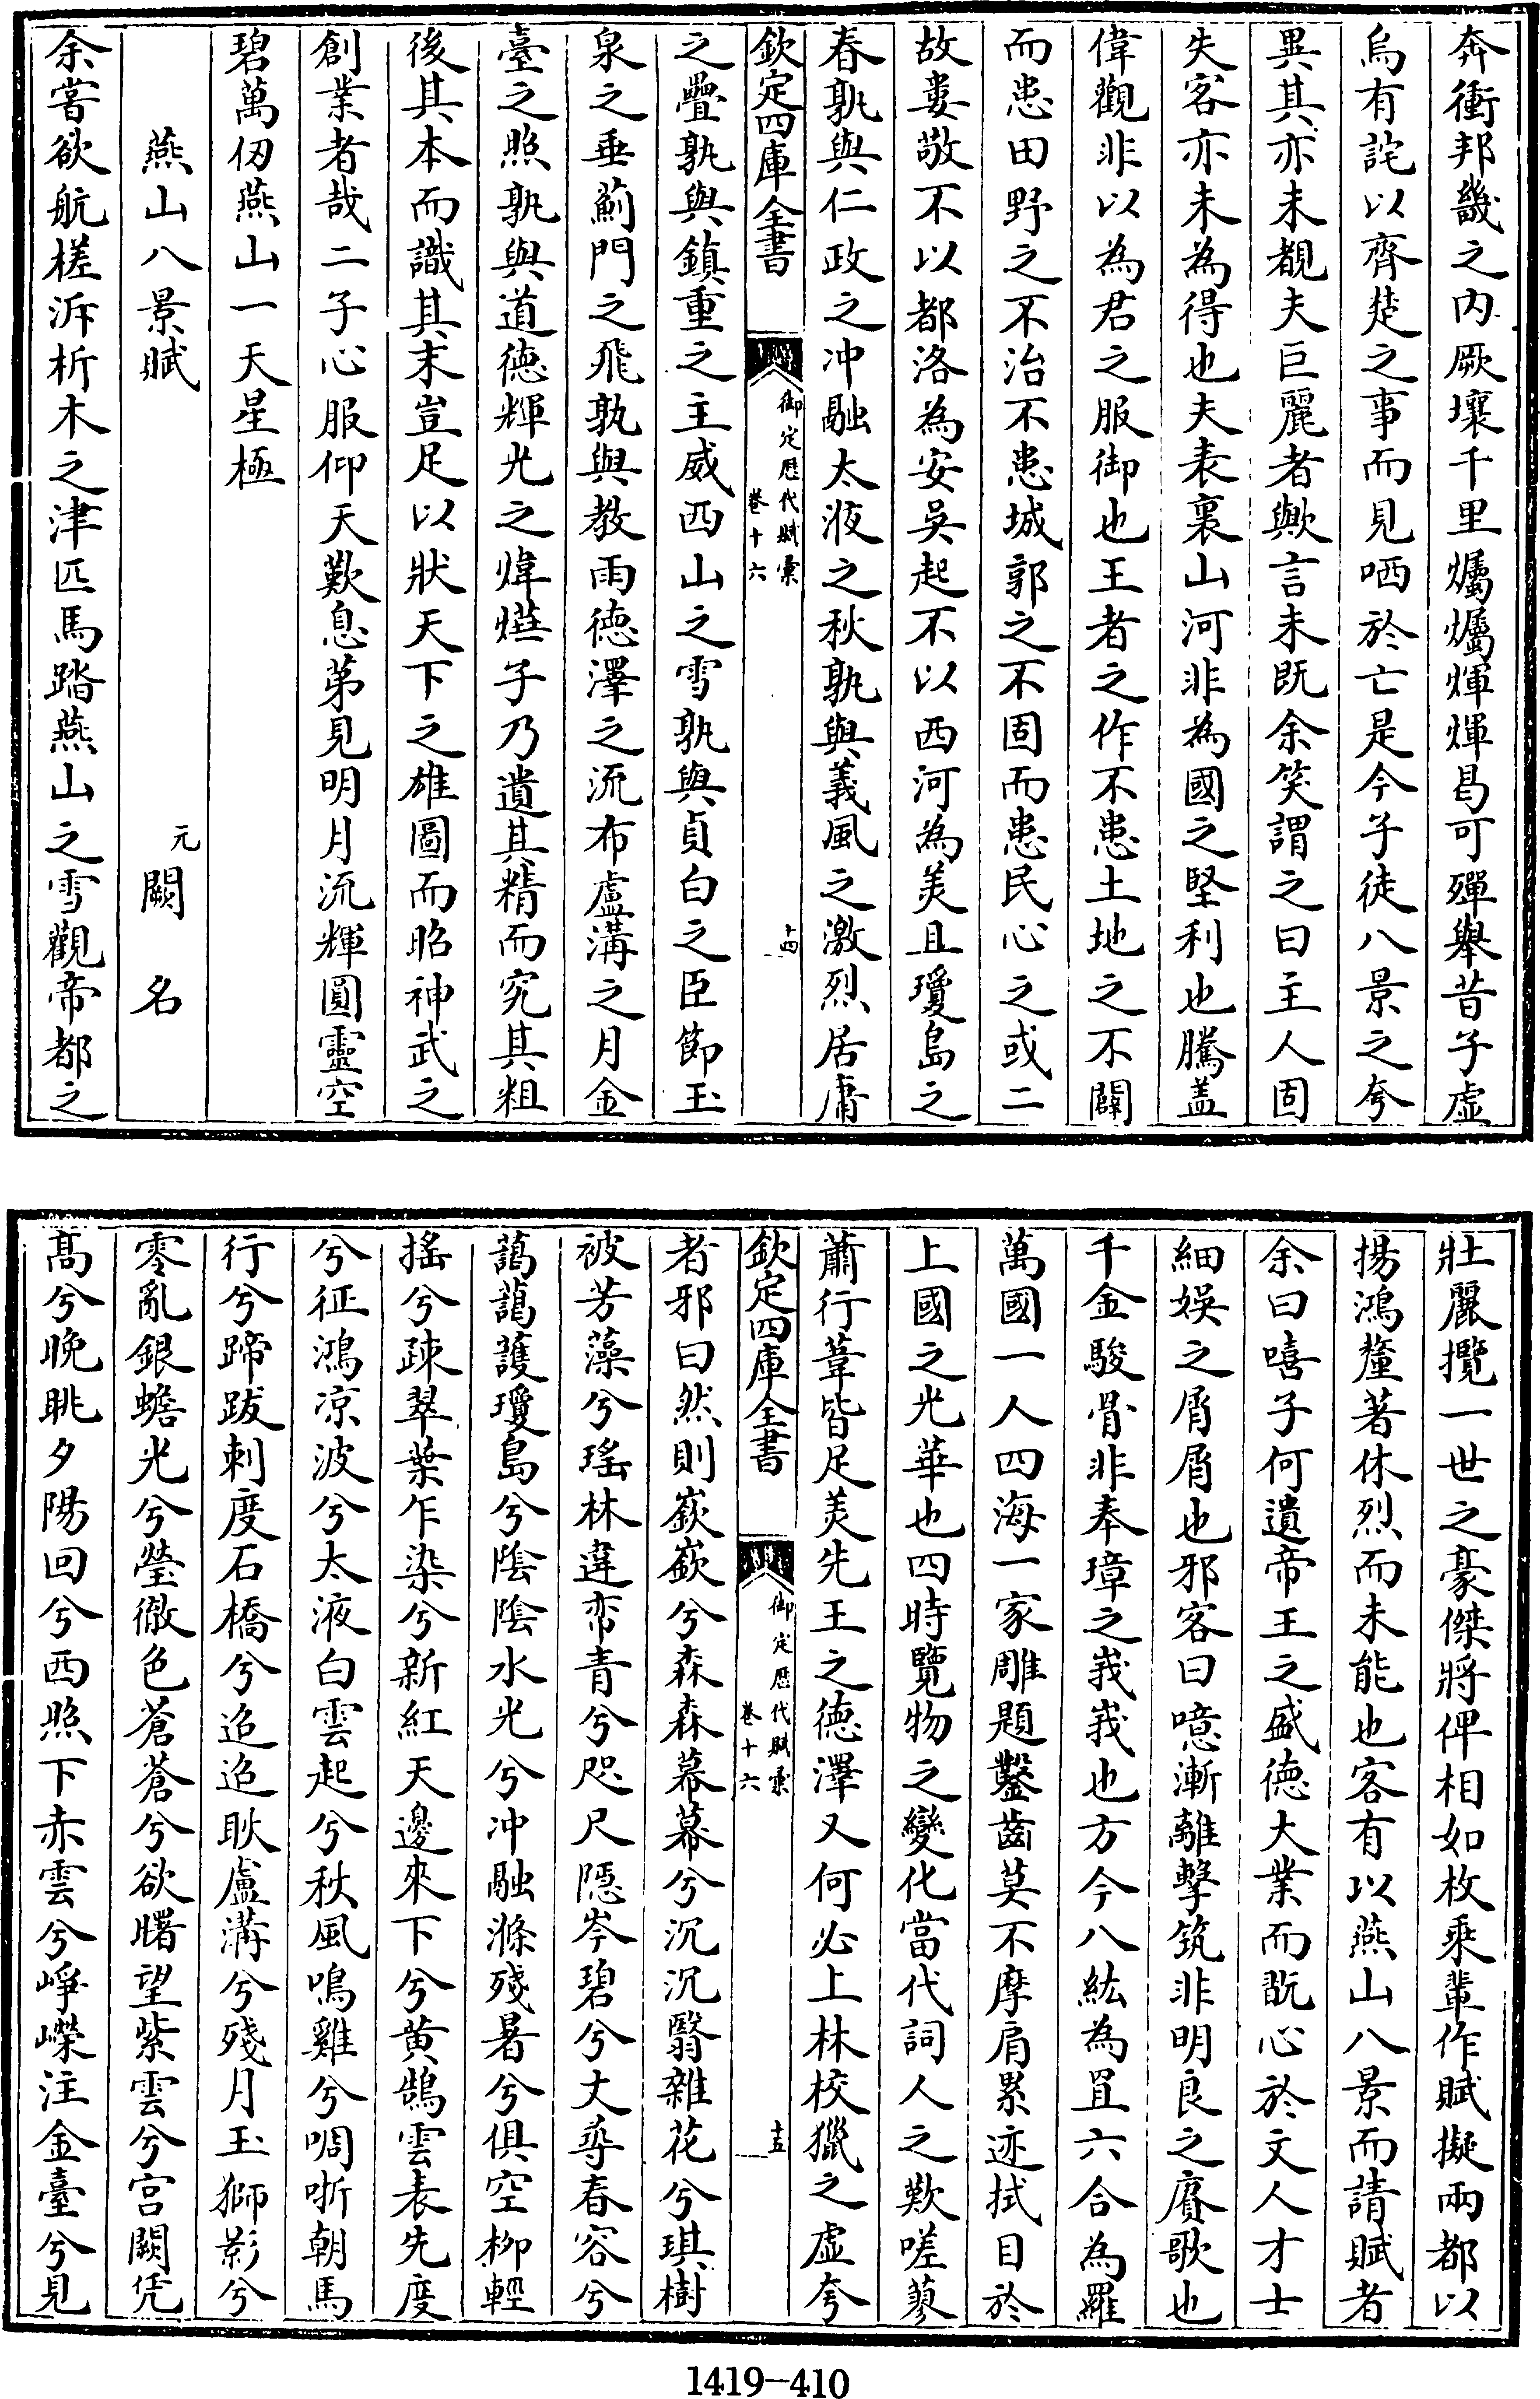 奔衝邦畿之内厥壤千里爥爥煇煇曷可殫舉昔子虛
烏有詫以齊楚之事而見哂於亡是今子徒八景之夸
異其亦未覩夫巨麗者歟言未既余笑謂之曰主人固
失客亦未為得也夫表裏山河非為國之堅利也騰盖
偉觀非以為君之服御也王者之作不患土地之不闢
而患田野之不治不患城郭之不固而患民心之或二
故婁敬不以都洛為安吳起不以西河為美且瓊島之
春孰與仁政之冲融太液之秋孰與義風之激烈居庸
欽定四庫全書
御定歷代賦彙
卷十六
十四
之疊孰與鎮重之主威西山之雪孰與貞白之臣節玉
泉之垂薊門之飛孰與教雨徳澤之流布盧溝之月金
臺之照孰與道徳輝光之煒爗子乃遺其精而究其粗
後其本而識其末豈足以狀天下之雄圖而昭神武之
創業者哉二子心服仰天歎息第見明月流輝圓靈空
碧萬仞燕山一天星極
燕山八景賦
元 闕名
余嘗欲航槎泝析木之津匹馬踏燕山之雪觀帝都之
壯麗攬一世之豪傑將俾相如枚乘輩作賦擬兩都以
揚鴻釐著休烈而未能也客有以燕山八景而請賦者
余曰嘻子何遺帝王之盛徳大業而翫心於文人才士
細娛之屑屑也邪客曰噫漸離擊筑非明良之賡歌也
千金駿骨非奉璋之峩峩也方今八紘為罝六合為羅
萬國一人四海一家雕題鑿齒莫不摩肩累迹拭目於
上國之光華也四時覽物之變化當代詞人之歎嗟蓼
蕭行葦皆足美先王之徳澤又何必上林校獵之虛夸
欽定四庫全書
御定歷代賦彙
卷十六
十五
者邪曰然則嶔嶔兮森森幕幕兮沉沉翳雜花兮琪樹
被芳藻兮瑤林違帟青兮咫尺隠岑碧兮丈尋春容兮
藹藹護瓊島兮陰陰水光兮冲融滌殘暑兮俱空柳輕
搖兮疎翠葉乍染兮新紅天邊來下兮黄鵠雲表先度
兮征鴻凉波兮太液白雲起兮秋風鳴雞兮啁哳朝馬
行兮蹄跋刺度石橋兮迢迢耿盧溝兮殘月玉獅影兮
零亂銀蟾光兮瑩徹色蒼蒼兮欲曙望紫雲兮宫闕凭
髙兮晚眺夕陽回兮西照下赤雲兮崢嶸注金臺兮見
1419-410